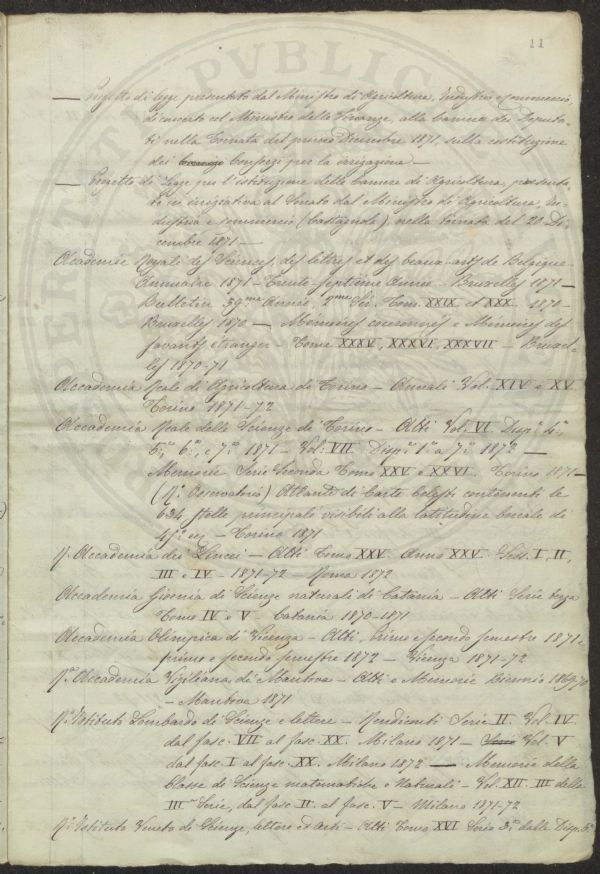 11
— Progetto di legge presentato dal Ministro di Agricoltura, Industria e Commercio,
di concerto col Ministro delle Finanze, alla Camera dei Deputa-
ti nella Tornata del primo Dicembre 1871, sulla costituzione
dei Consorzi per la irrigazione —
— Progetto di Legge per l'istituzione delle Camere di Agricoltura, presenta-
to in iniziativa al Senato dal Ministro di Agricoltura, In-
dustria e commercio (Castagnola), nella tornata del 20 Di-
cembre 1871 —
Académie Royale des Sciences, des lettres et des beaux-arts de Belgique
Annuaire 1871 – Trente-septième Année – Bruxelles 1871 –
Bulletin 39me Année, 2me Sér. Tom. XXIX et XXX. 1870 –
Bruxelles 1870 — Mémoires couronnés e Mémoires des
savants étranger – Tome XXXV, XXXVI, XXXVII – Bruxel-
les 1870-71
Accademia Reale di Agricoltura di Torino – Annali Vol. XIV e XV
Torino 1871-72
Accademia Reale delle Scienze di Torino – Atti Vol. VI Disp.e 4a,
5a, 6a, e 7a 1871 – Vol. VII Disp.e 1a a 7a 1872 –
Memorie Serie Seconda Tomo XXV e XXVI. Torino 1871 –
(R.o Osservatorio) Atlante di Carte Celesti contenenti le
634 stelle principali visibili alla latitudine boreale di
45° – Torino 1871
R. Accademia dei Lincei – Atti Tomo XXV. Anno XXV. Sess. I, II,
III e IV – 1871-72 – Roma 1872
Accademia Gioenia di Scienze naturali di Catania – Atti Serie terza
Tomo IV e V – Catania 1870-1871
Accademia Olimpica di Vicenza – Atti, primo e secondo semestre 1871 –
primo e secondo semestre 1872 – Vicenza 1871-72
R.a Accademia Virgiliana di Mantova – Atti e Memorie Biennio 1869-70
– Mantova 1871
R.o Istituto Lombardo di Scienze e lettere – Rendiconti Serie II. Vol. IV.
dal fasc. VII al fasc. XX. Milano 1871 – Serie Vol. V
dal fasc. I al fasc. XX. Milano 1872 — Memorie della
Classe di Scienze matematiche e Naturali – Vol. XII. III della
III Serie, dal fasc. II. al fasc. V – Milano 1871-72
R.o Istituto Veneto di Scienze, lettere ed arti – Atti Tomo XVI Serie 3a dalla Disp. 5a